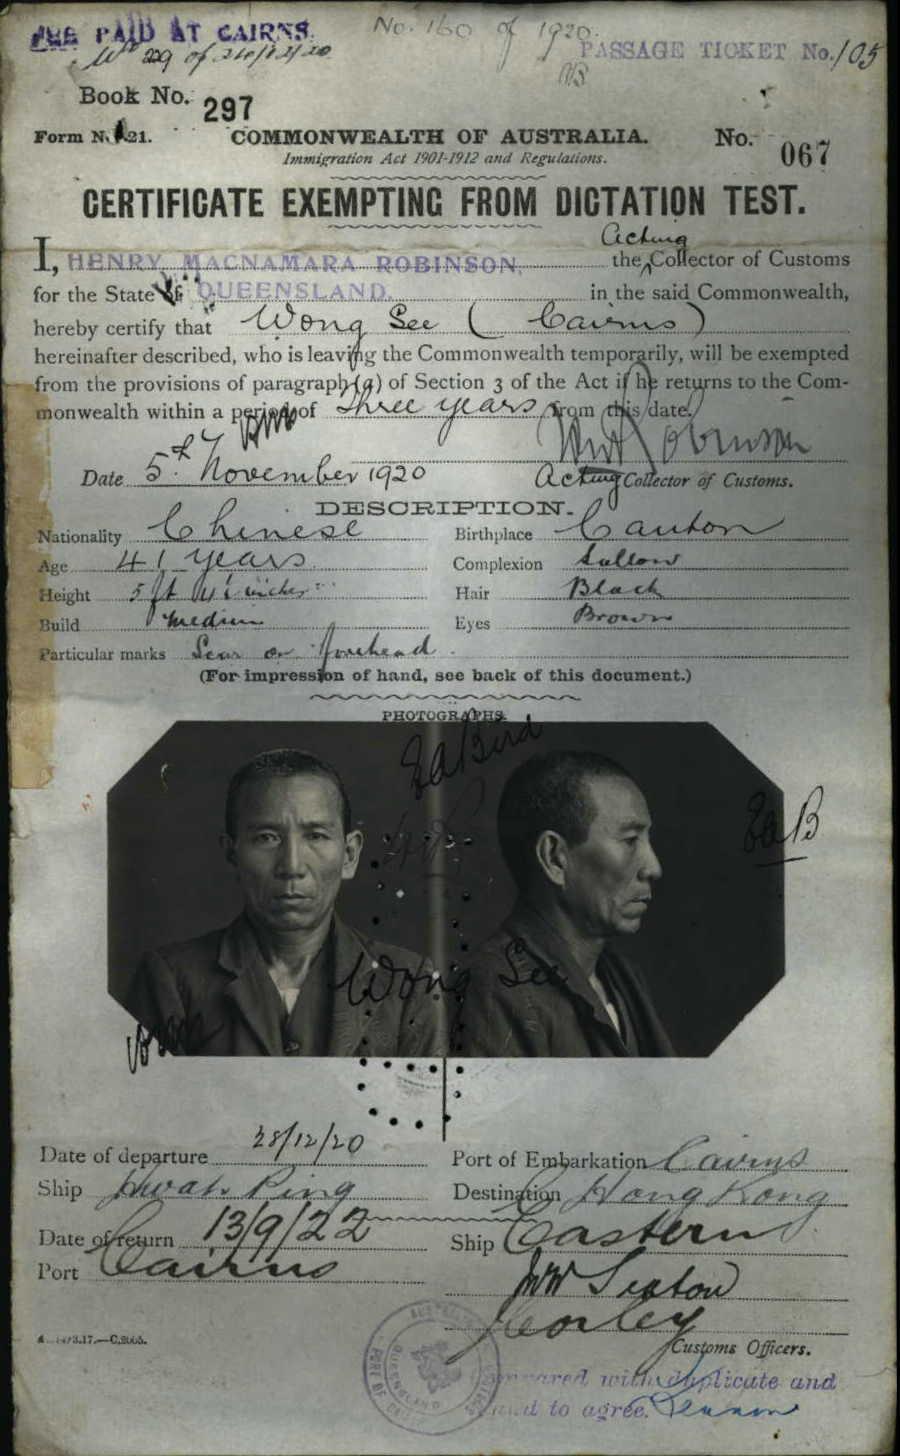 FEE PAID AT CAIRNS.
No. 160 of 1920.
PASSAGE TICKET No. 105
of 24/12/20
Book No. 297
Form No. 21.
COMMONWEALTH OF AUSTRALIA.
No. 067
Immigration Act 1901-1912 and Regulations.
CERTIFICATE EXEMPTING FROM DICTATION TEST.
I, HENRY MACNAMARA ROBINSON, the Acting Collector of Customs
for the State of QUEENSLAND. in the said Commonwealth,
hereby certify that Wong See (Cairns)
hereinafter described, who is leaving the Commonwealth temporarily, will be exempted
from the provisions of paragraph (a) of Section 3 of the Act if he returns to the Com-
monwealth within a period of three years from this date.
HM Robinson
Date 5th November 1920 Acting Collector of Customs.
DESCRIPTION.
Nationality Chinese Birthplace Canton
Age 41 years Complexion Sallow
Height 5 ft 4½ inches Hair Black
Build Medium Eyes Brown
Particular marks Scar on forehead.
(For impression of hand, see back of this document.)
PHOTOGRAPHS.
Ea Bird
EaB
Wong See
Date of departure 28/12/20 Port of Embarkation Cairns
Ship Hwah Ping Destination Hong Kong
Date of return 13/9/22 Ship Eastern
Port Cairns
Customs Officers.
Compared with duplicate and
found to agree.